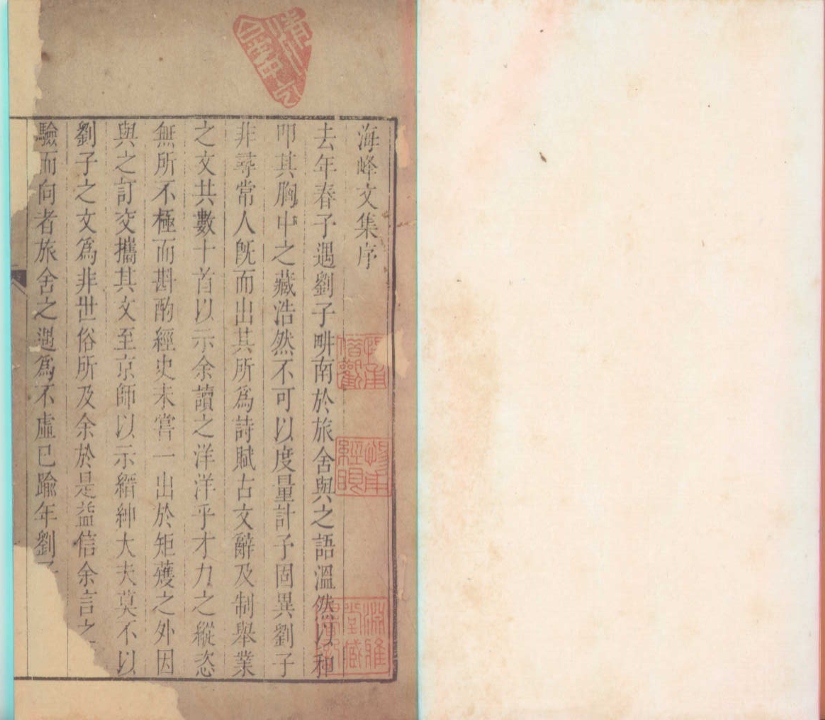 海峰文集序
去年春子遇劉子畊南於旅舍與之語溫然以和
叩其胸中之藏浩然不可以度量計予固異劉子
非尋常人旣而出其所爲詩賦古文辭及制舉業
之文共數十首以示余讀之洋洋乎才力之縱恣
無所不極而斟酌經史未嘗一出於矩矱之外因
與之訂交攜其文至京師以示縉紳大夫莫不以
劉子之文爲非世俗所及余於是益信余言之
驗而向者旅舍之遇爲不虛已踰年劉